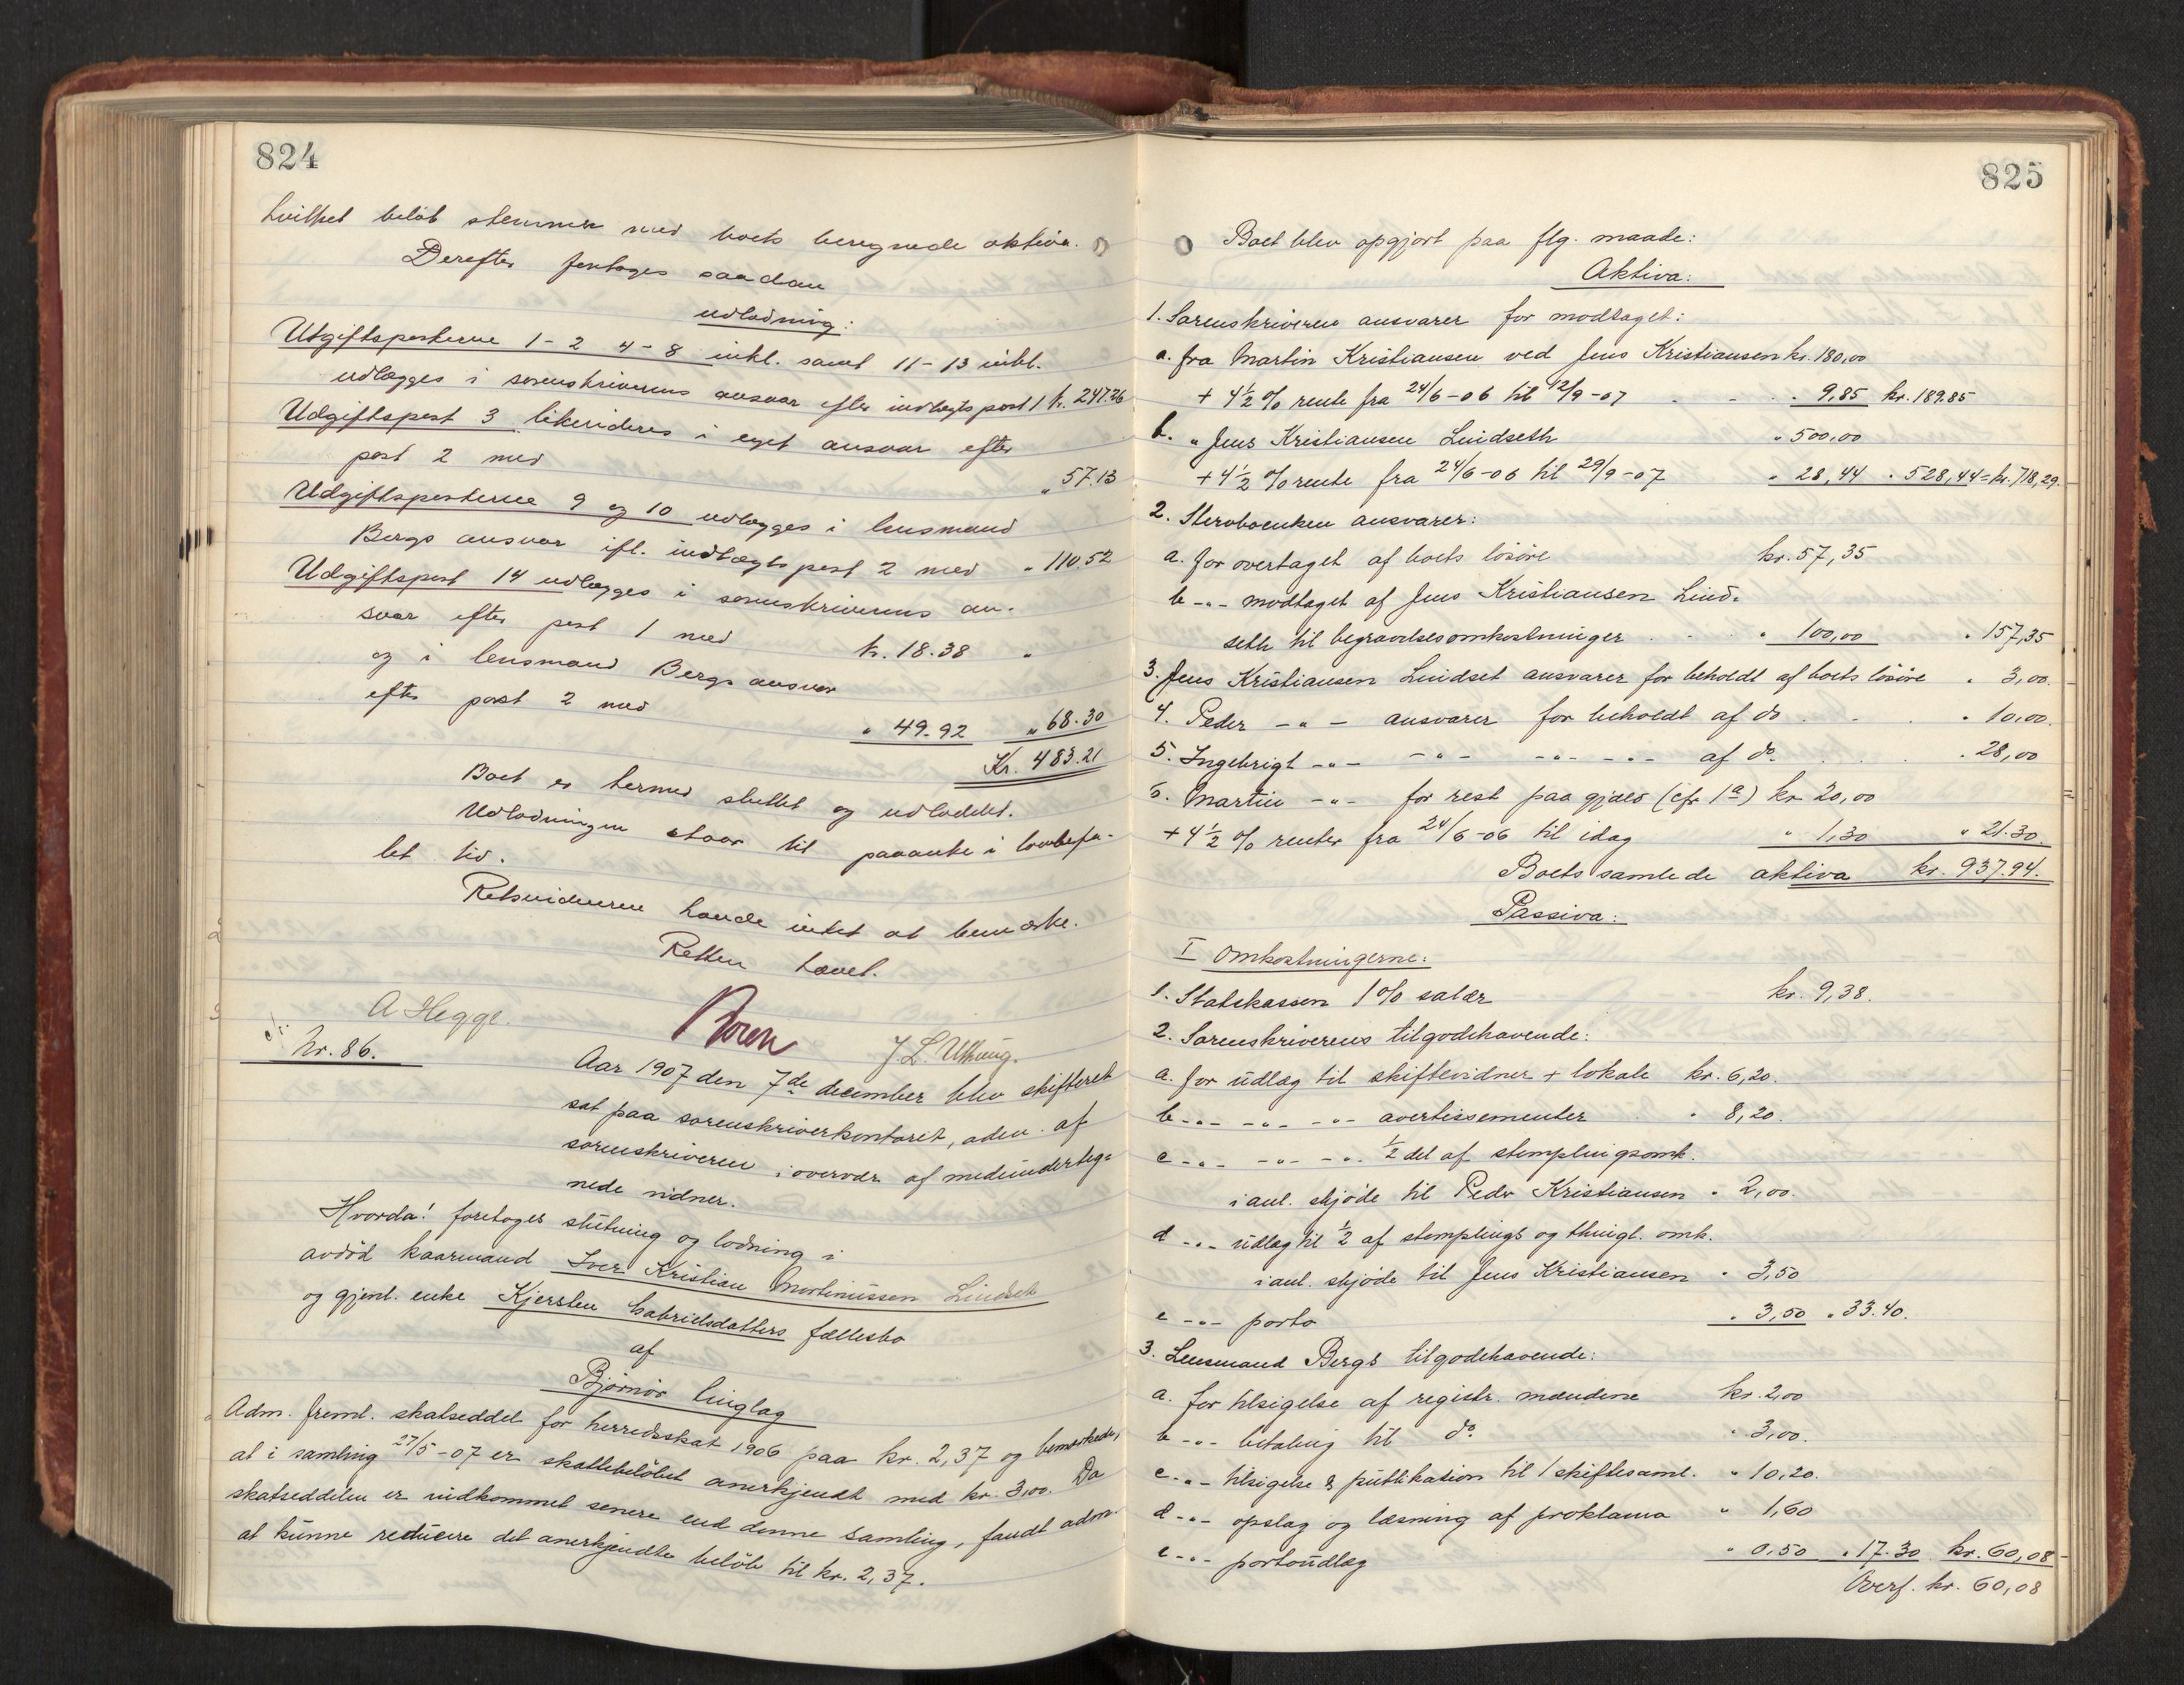 824
hvilket beløb stemmer med boets beregnede aktiva.
Derefter foretoges saadan
udlodning:
Utgiftsposterne 1-2 4-8 inkl. samt 11-13 inkl.
udlægges i sorenskriverens ansvar efter indtægtspost 1 kr. 247.26
Udgiftspost 3 likvideres i eget ansvar efter
post 2 med " 57.13
Udgiftsposterne 9 og 10 udlægges i lensmand
Bergs ansvar ifl. indtægtspost 2 med " 110.52
Udgiftspost 14 udlægges i sorenskriverens an-
svar efter post 1 med kr. 18.38 "
og i lensmand Bergs ansvar
efter post 2 med " 49.92 " 68.30
Kr. 483.21
Boet er hermed sluttet og udloddet.
Udlodningen staar til paaanke i lovbefa-
let tid.
Retsvidnerne havde intet at bemærke.
Retten hævet.
A Hegge.
J. L. Uthaug.
Nr. 86.
Aar 1907 den 7de december blev skifteret
sat paa sorenskriverkontoret, adm. af
sorenskriveren i overvær af medunderteg-
nede vidner.
Hvorda! foretoges slutning og lodning i
avdød kaarmand Iver Kristian Martinussen Lindset
og gjenl. enke Kjersten Gabrielsdatters fællesbo
af
Bjørnør tinglag
Adm. freml. skatseddel for herredsskat 1906 paa kr. 2,37 og bemærkede,
at i samling 27/5-07 er skattebeløbet anerkjendt med kr. 3,00. Da
skatseddelen er indkommet senere end denne samling, fandt adm.
at kunne reducere det anerkjendte beløb til kr. 2,37.
825
Boet blev opgjort paa flg. maade:
Aktiva:
1. Sorenskriveren ansvarer for modtaget:
a. fra Martin Kristiansen ved Jens Kristiansen kr. 180,00
+ 4½ % rente fra 24/6-06 til 12/9-07 . . . 9,85 kr. 189.85
b. " Jens Kristiansen Lindseth " 500,00
+ 4½ % rente fra 24/6-06 til 29/9-07 " 28,44 " 528,44 = kr. 718,29.
2. Stervboenken ansvarer:
a. for overtaget af boets løsøre kr. 57,35
b -"- modtaget af Jens Kristiansen Lind-
seth til begravelsesomkostninger . . " 100,00 " 157,35
3. Jens Kristiansen Lindset ansvarer for beholdt af boets løsøre " 3,00.
4. Peder -"- ansvarer for beholdt af do . . . " 10,00.
5. Ingebrigt -"- -"- -"- -"- af do. . . . " 28,00
6. Martin -"- for rest paa gjæld (cfr 1a) kr. 20,00
+ 4½ % renter fra 24/6-06 til idag " 1,30 " 21.30.
Boets samlede aktiva kr. 937.94.
Passiva:
I Omkostningerne:
1. Statskassen 1 % salær kr. 9,38.
2. Sorenskriverens tilgodehavende:
a. for udlæg til skiftevidner + lokale kr. 6,20.
b -"- -"- -"- avertissementer . " 8,20.
c -"- -"- -"- ½ del af stemplingsomk.
i anl. skjøde til Peder Kristiansen " 2,00.
d -"- udlæg til ½ af stemplings og thingl. omk.
i anl. skjøde til Jens Kristiansen " 3,50
e -"- porto " 3,50 " 33.40.
3. Lensmand Bergs tilgodehavende:
a. for tilsigelse af registr. mændene kr. 2,00
b -"- betaling til do " 3,00.
c -"- tilsigelse & publikation til 1 skiftesaml. " 10,20.
d -"- opslag og læsning af proklama " 1,60
e -"- portoudlæg " 0,50 " 17.30 kr. 60,08
Overf. kr. 60,08